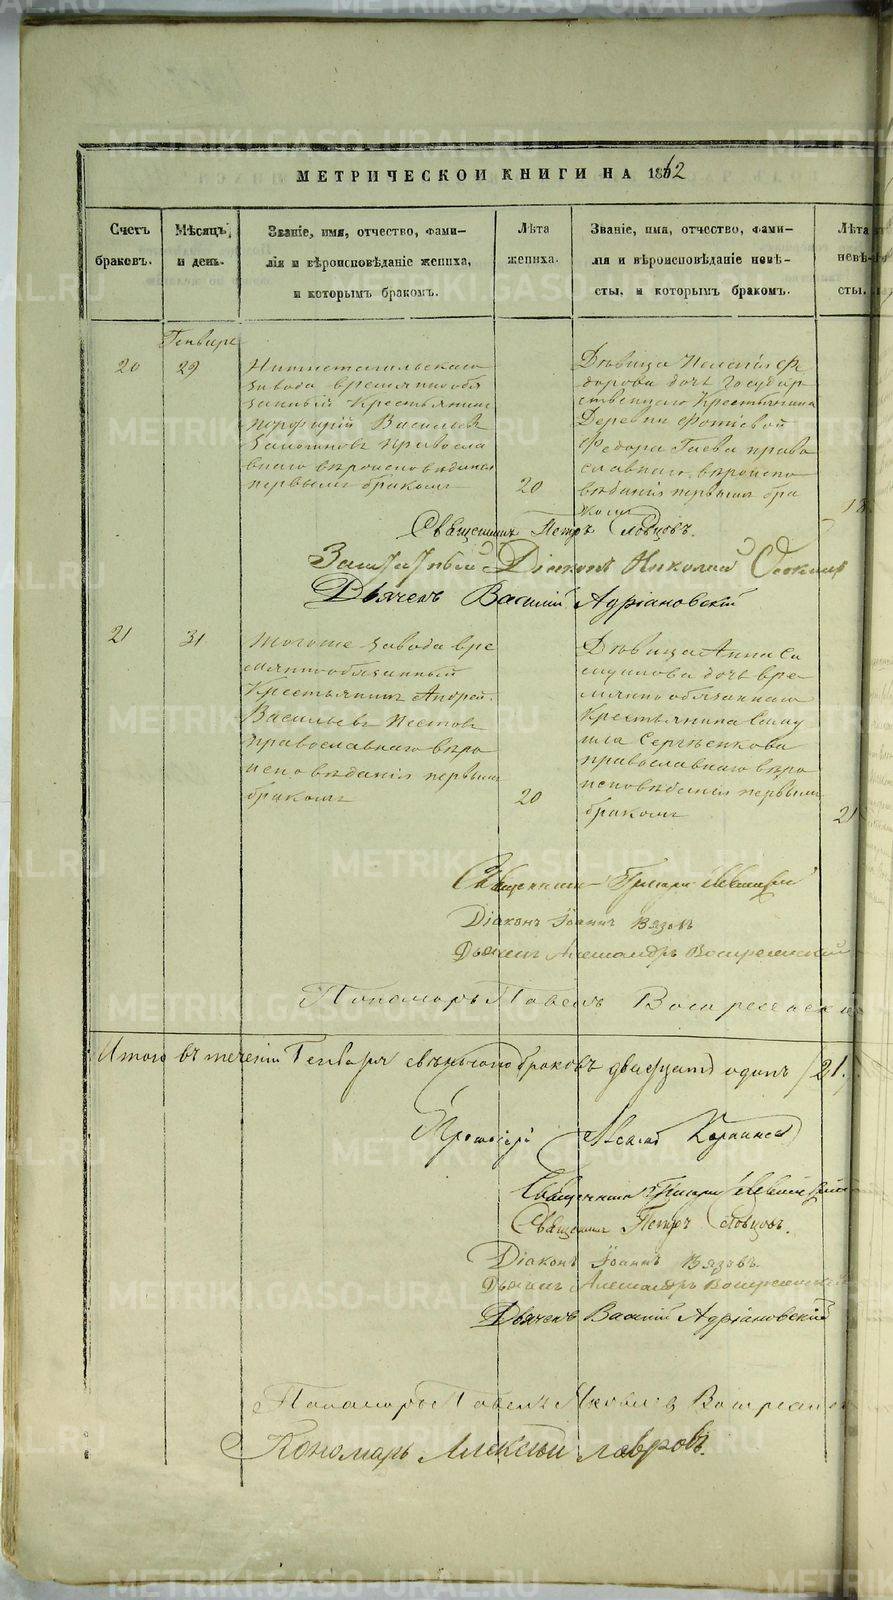 МЕТРИЧЕСКОЙ КНИГИ НА 1862
Счетъ браковъ.
Мѣсяцъ и день.
Званіе, имя, отчество, фами-
лія и вѣроисповѣданіе жениха,
и которымъ бракомъ.
Лѣта жениха.
Званіе, имя, отчество, фами-
лія и вѣроисповѣданіе невѣ-
сты, и которымъ бракомъ.
Лѣта невѣ-
сты.
Генваря
20
29
Нижнетагильскаго
завода временнообя
занный Крестьянинъ
Порфирій Васильевъ
православ
наго вѣроисповѣданія
первымъ бракомъ
20
Дѣвица Ѳе
дорова дочь Государ
ственнаго Крестьянина
Деревни Фотѣевой
Федора Гаева право
славнаго вѣроиспо
вѣданія первымъ бра
комъ
18
Священникъ Петръ Словцовъ.
Заштатный Діаконъ Николай
Дьячекъ Василій Адріановскій
21
31
Тогоже завода вре
менно обязанный
Крестьянинъ Андрей
Васильевъ Пестовъ
православнаго вѣро
исповѣданія первымъ
бракомъ
20
Дѣвица Анна Са
муилова дочь вре
менно обязаннаго
Крестьянина Саму
ила Сергѣенкова
православнаго вѣро
исповѣданія первымъ
бракомъ
21
Священникъ
Діаконъ Іоаннъ Вязовъ
Дьячекъ Александръ Воскресенскій
Пономарь Павелъ Воскресенскій
Итого въ теченіи Генваря браковъ двадцать одинъ /21/
Протоіерей
Священникъ
Священникъ Петръ Словцовъ.
Діаконъ Іоаннъ Вязовъ.
Дьячекъ Александръ Воскресенскій
Дьячекъ Василій Адріановскій
Пономарь Павелъ Яковлевъ
Пономарь Алексѣй Лавровъ.
METRIKI.GASO-URAL.RU